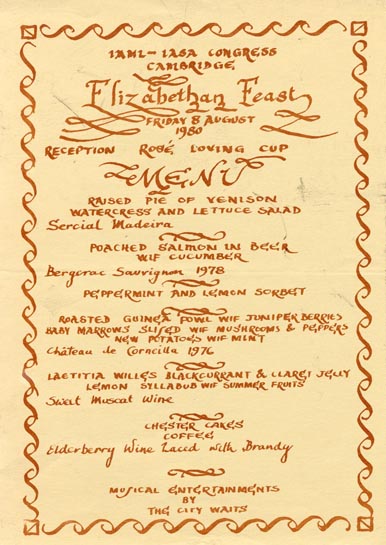 IAML-IASA CONGRESS
CAMBRIDGE
Elizabethan Feast
FRIDAY 8 AUGUST
1980
RECEPTION ROSÉ LOVING CUP
MENU
RAISED PIE OF VENISON
WATERCRESS AND LETTUCE SALAD
Sercial Madeira
POACHED SALMON IN BEER
WIF CUCUMBER
Bergerac Sauvignon 1978
PEPPERMINT AND LEMON SORBET
ROASTED GUINEA FOWL WIF JUNIPER BERRIES
BABY MARROWS SLIFED WIF MUSHROOMS & PEPPERS
NEW POTATOES WIF MINT
Château de Corneilla 1976
LAETITIA WILLES BLACKCURRANT & CLARET JELLY
LEMON SYLLABUB WIF SUMMER FRUITS
Sweet Muscat Wine
CHESTER CAKES
COFFEE
Elderberry Wine Laced with Brandy
MUSICAL ENTERTAINMENTS
BY
THE CITY WAITS